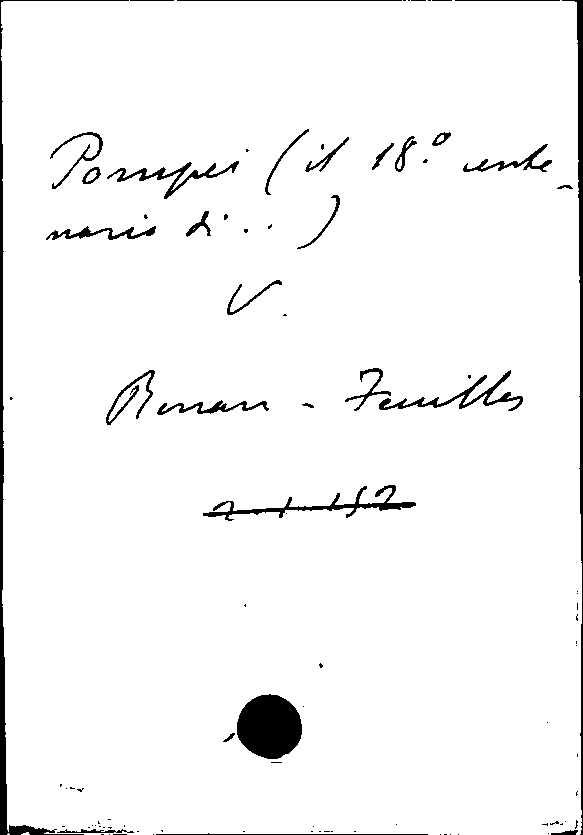 Pompei (il 18.º cente-
nario di...)
V.
Renan - Feuilles
2.1.152